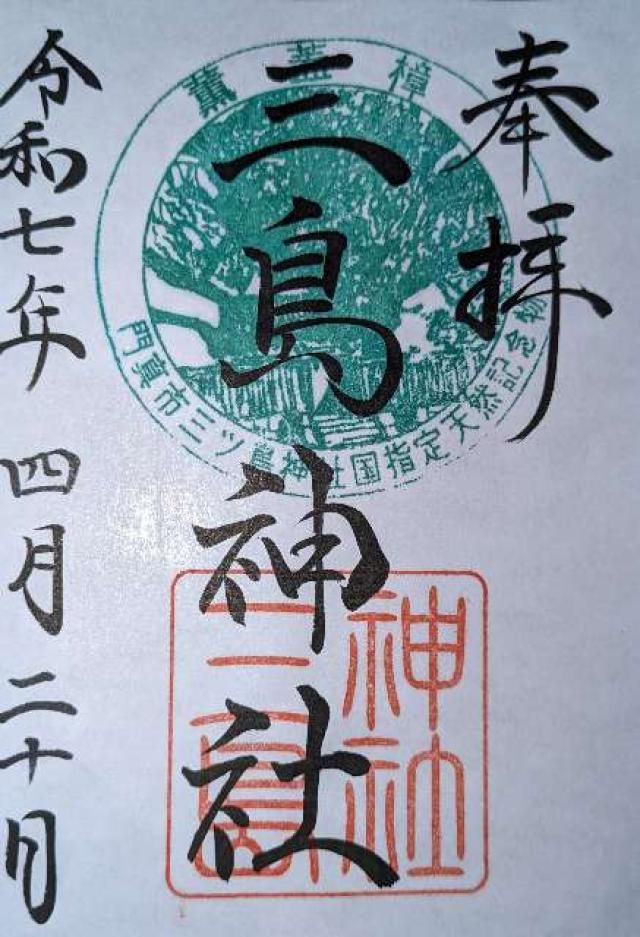 奉拝
薫蓋樟
三島神社
門真市三ツ島神社国指定天然記念物
三島
神社
令和七年四月二十日